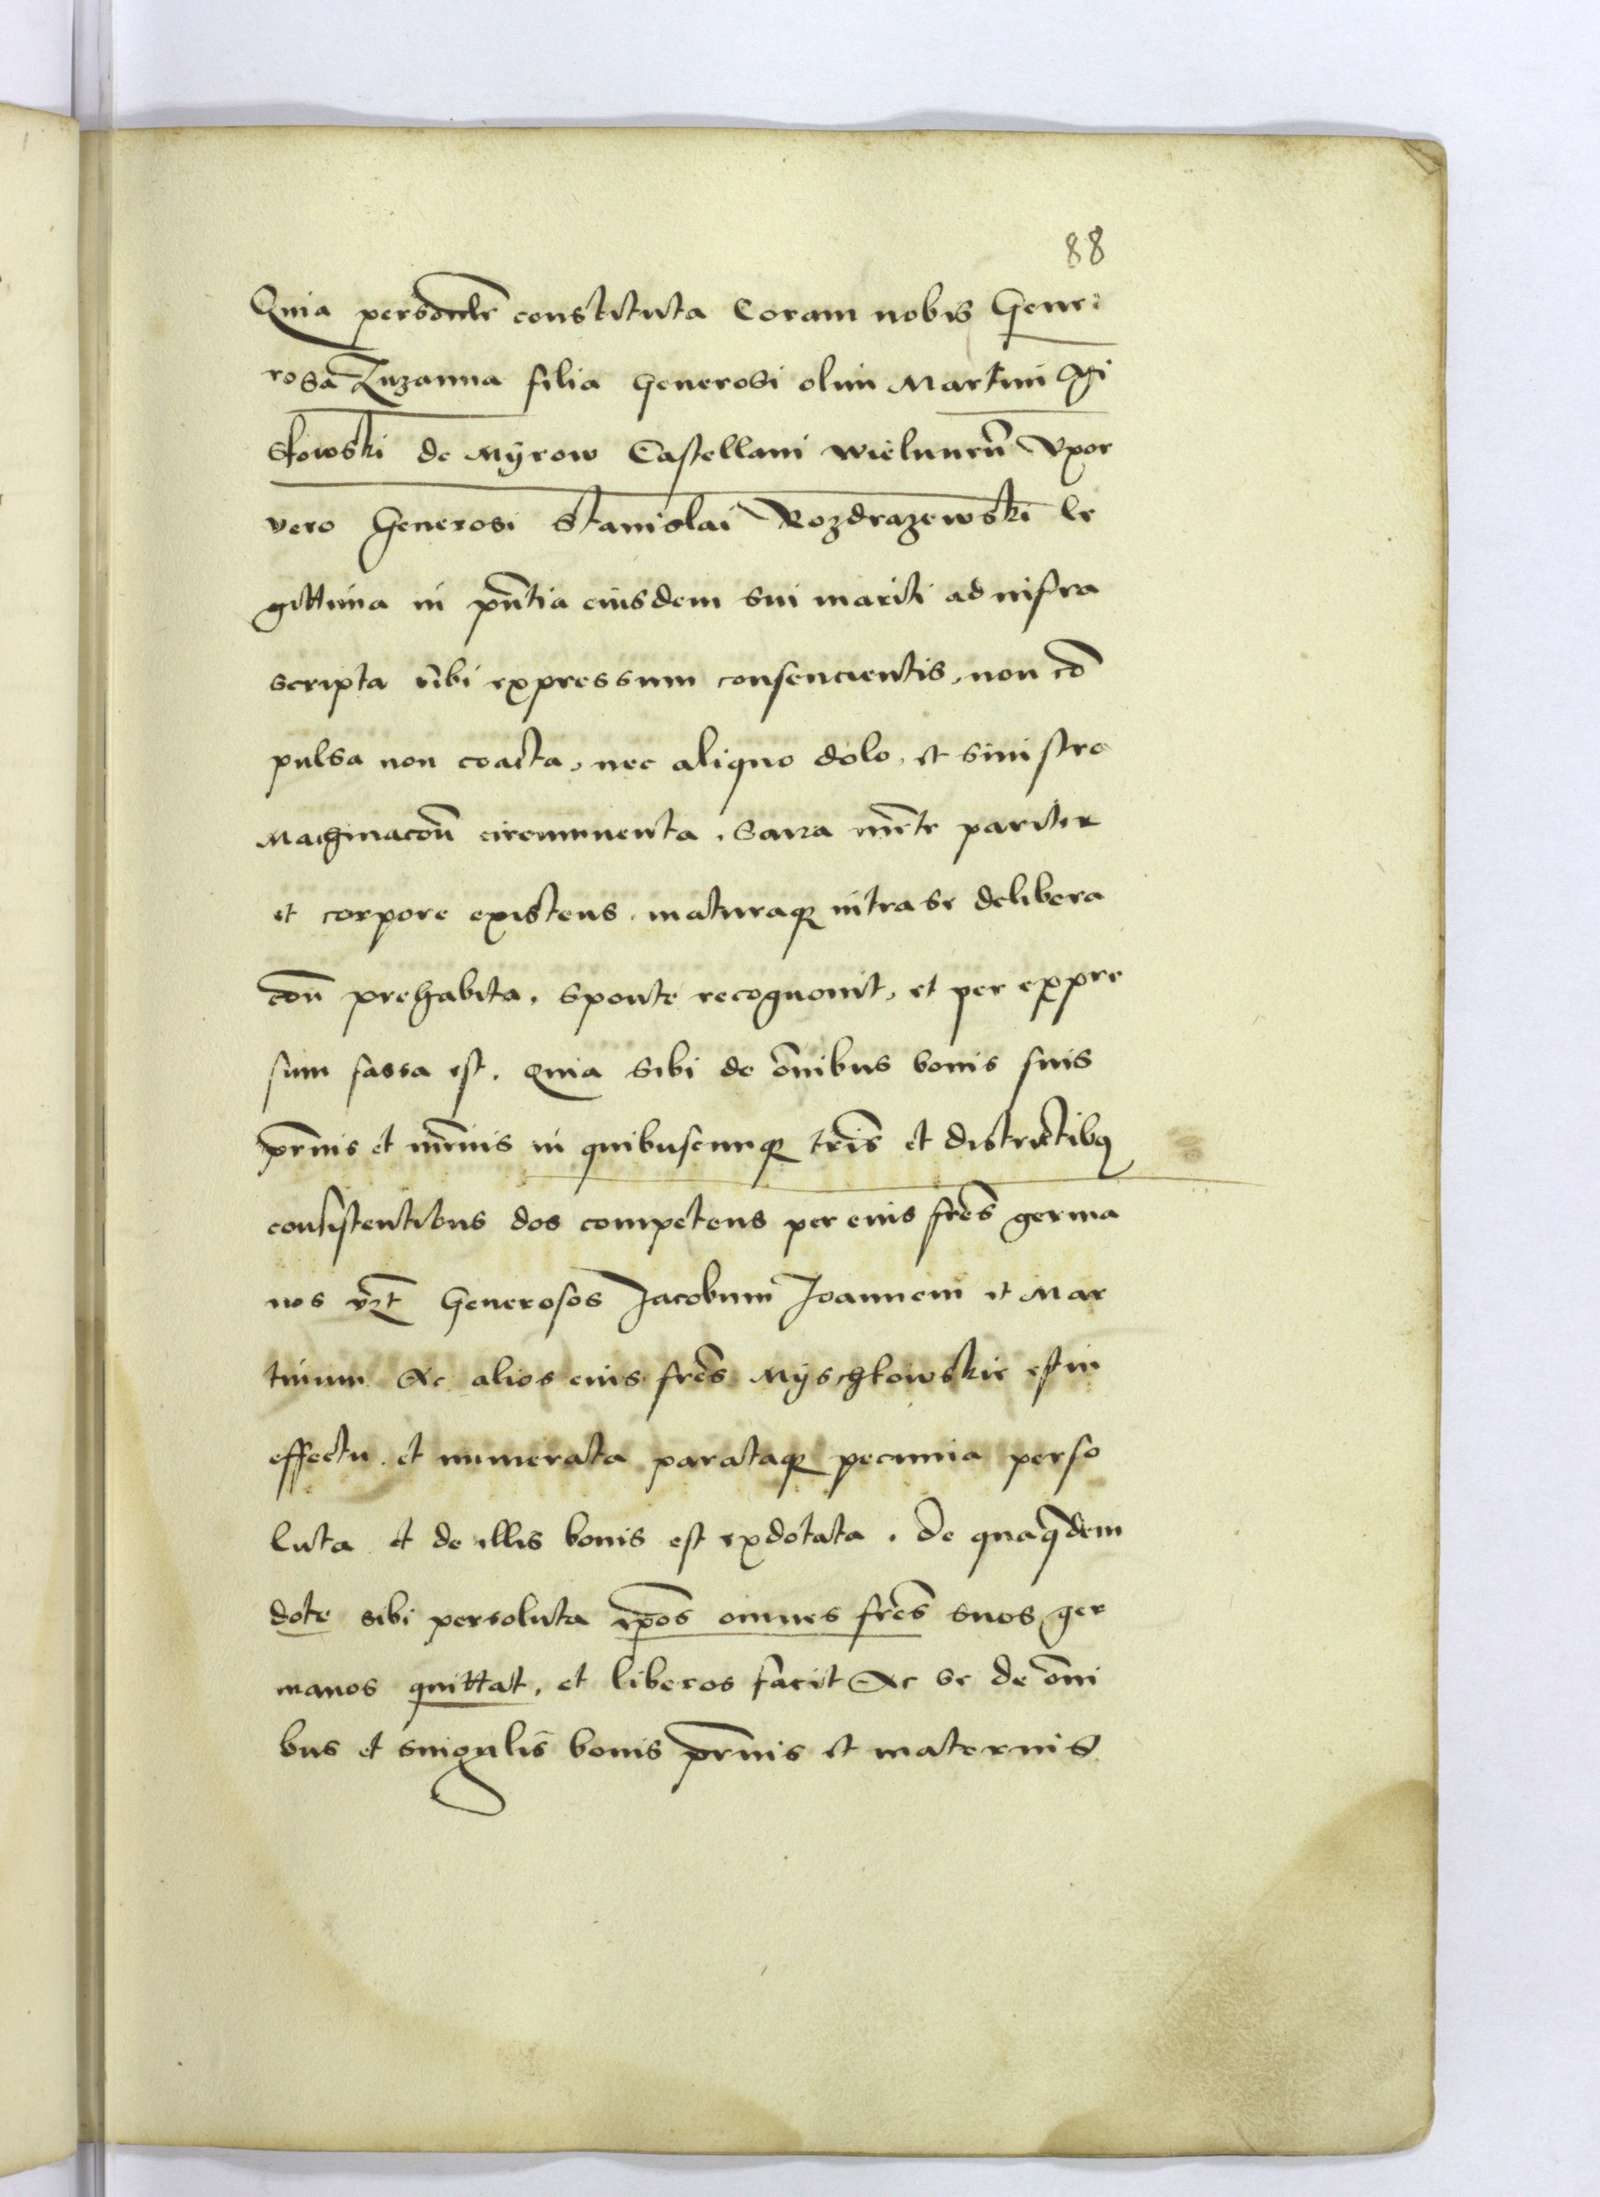 88
Quia personlr constituta Coram nobis Gene
rosa Zuzanna filia Generosi olim Martini
skowski de Myrow Castellani wielunen̄ Vxor
vero Generosi Stanislai Rozdrazewski le
gittima in pn̄tia eiusdem sui mariti ad infra
scripta vībi expressum consencientis, non cō
pulsa non coacta, nec aliquo dolo, et sinistra
Machinacōn circumuenta, Sana mēte pariter
et corpore existens, maturaqꝫ intra se delibera
cōn prehabita, sponte recognouit, et per expre
sum fassa est, Quia sibi de ōnibus bonis suis
pr̄nis et mr̄nis in quibuscunqꝫ tr̄is et districtibꝫ
consistentibus dos competens per eius fr̄es germa
nos vꝫt Generosos Jacobum Joannem et Mar
tinum Ac alios eius fr̄es Myschkowskie est in
effectu et numerata parataqꝫ pecunia perso
luta et de illis bonis est exdotata, De quaq̄dem
dote sibi persoluta ip̄os omnes fr̄es suos ger
manos quittat, et liberos facit Ac se de ōni
bus et singulis bonis pr̄nis et maternis